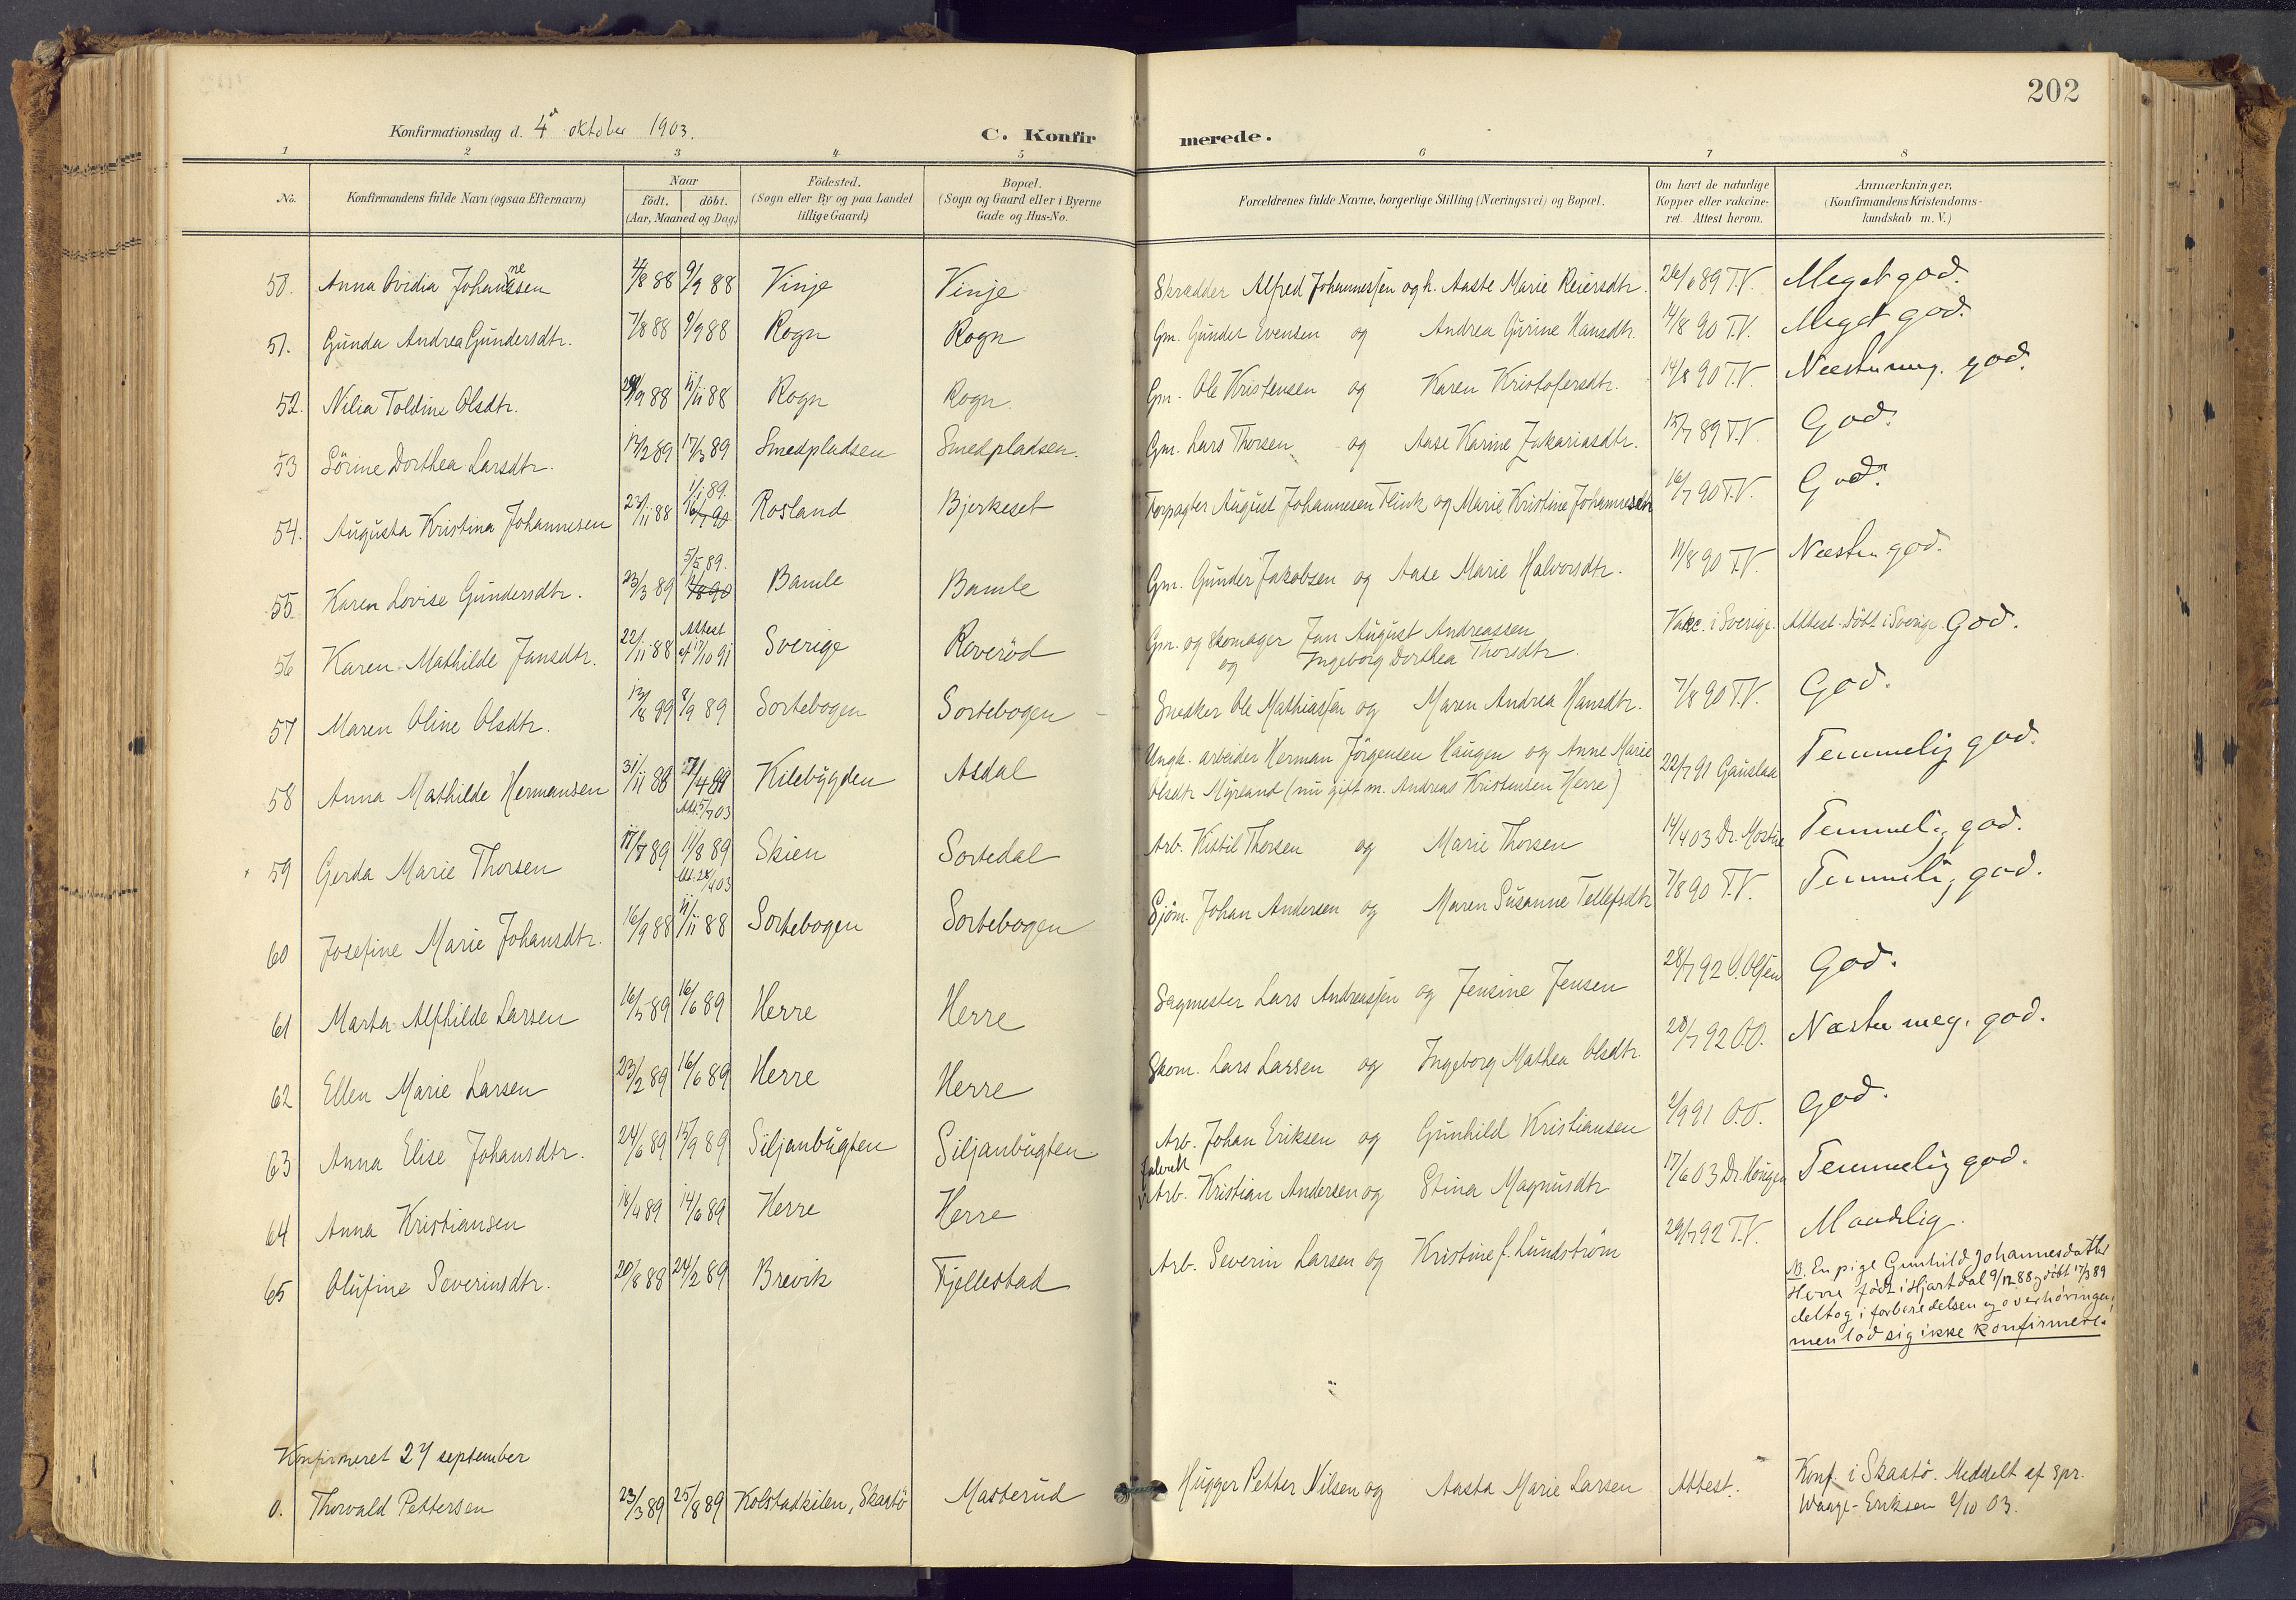 202
Konfirmationsdag d. 4d oktober 1903.
C. Konfirmerede.
1 2 3 4 5 6 7 8
No.
Konfirmandens fulde Navn (ogsaa Efternavn)
Naar
födt. döbt.
(Aar, Maaned og Dag)
Födested.
(Sogn eller By og paa Landet
tillige Gaard)
Bopæl.
(Sogn og Gaard eller i Byerne
Gade og Hus-No.
Forældrenes fulde Navne, borgerlige Stilling (Næringsvei) og Bopæl.
Om havt de naturlige
Kopper eller vakcine-
ret. Attest herom.
Anmærkninger.
(Konfirmandens Kristendoms-
kundskab m. V.)
50. Anna Ovidia Johannesen 4/8 88 9/9 88 Vinje Vinje Skrædder Alfred Johannessen og h. Aaste Marie Reiersdtr. 26/6 89 T.V. Meget god.
51. Gunda Andrea Gundersdtr. 7/8 88 9/9 88 Rogn Rogn Gm. Gunder Evensen og Andrea Gurine Hansdtr. 14/8 90 T.V. Meget god.
52. Nilia Toldine Olsdtr. 29/9 88 11/11 88 Rogn Rogn. Gm. Ole Kristensen og Karen Kristofersdtr. 14/8 90 T.V. Næsten meg. god.
53 Sörine Dorthea Larsdtr. 12/2 89 17/3 89 Smedpladsen Smedpladsen. Gm. Lars Thorsen og Aase Karine Zakariasdtr. 15/7 89 T.V. God.
54. Augusta Kristina Johannesen 23/11 88 1/1 89. 16/7 90 Rosland Bjerkeset Forpagter August Johannesen Flink og Marie Kristine Johannesdtr 16/7 90 T.V. God.
55. Karen Lovise Gundersdtr. 23/3 89 5/5 89. 14/8 90 Bamle Bamle Gm. Gunder Jakobsen og Aase Marie Halvorsdtr. 14/8 90 T.V. Næsten god.
56 Karen Mathilde Jansdtr. 22/11 88 Attest af 17/10 91 Sverige Roveröd Gm. og skomager Jan August Andreassen
og Ingeborg Dorthea Thorsdtr. Vakc. i Sverige. Attest. Döbt i Sverige. God.
57 Maren Oline Olsdtr. 12/8 89 8/9 89 Sortebogen Sortebogen Snedker Ole Mathiassen og Maren Andrea Hansdtr. 7/8 90 T.V. God.
58 Anna Mathilde Hermansen 31/11 88 Kilebygden Asdal Ungk. arbeider Herman Jörgensen Haugen og Anne Marie
Olsdtr Myrland (nu gift m. Andreas Kristensen Herre) 22/7 91 Gauslaa Temmelig god.
Att. 5/7 03
59 Gerda Marie Thorsen 17/7 89 11/8 89 Skien Sortedal Arb. Kittil Thorsen og Marie Thorsen 14/4 03 Dr. Temmelig god.
60 Josefine Marie Johansdtr. 16/9 88 11/11 88 Sortebogen Sortebogen Sjöm. Johan Andersen og Maren Susanne Tellefsdtr 7/8 90 T.V. Temmelig god.
61 Marta Alfhilde Larsen 16/5 89 16/6 89 Herre Herre Sagmester Lars Andreassen og Jensine Jensen 28/7 92 O. Olsen God.
62 Ellen Marie Larsen 23/2 89 16/6 89 Herre Herre Skom. Lars Larsen og Ingeborg Mathea Olsdtr. 28/7 92 O.O. Næsten meg. god.
63 Anna Elise Johansdtr. 24/6 89 15/9 89 Siljanbugten Siljanbugten Arb. Johan Eriksen og Gunhild Kristiansen 2/9 91 O.O. God.
64 Anna Kristiansen 18/4 89 14/6 89 Herre Herre Arb. Kristian Andersen og Stina Magnusdtr 17/6 03 Dr. Hougen Temmelig god.
65 Olufine Severinsdtr. 20/8 88 24/2 89 Brevik Fjellestad Arb. Severin Larsen og Kristine f. Lundström 29/7 92 T.V. Maadelig.
NB. En pige Gunhild Johannesdatter
Herre født i Hjartdal 9/12 88, döbt 17/3 89
deltog i forberedelsen og overhøringen,
men lod sig ikke konfirmere.
Konfirmeret 27 september
0. Thorvald Pettersen 23/3 89 25/8 89 Kolstadkilen, Skaatö Masterud Hugger Petter Nilsen og Aasta Marie Larsen Attest. Konf. i Skaatö. Meddelt af spr.
Waage-Eriksen 2/10 03.